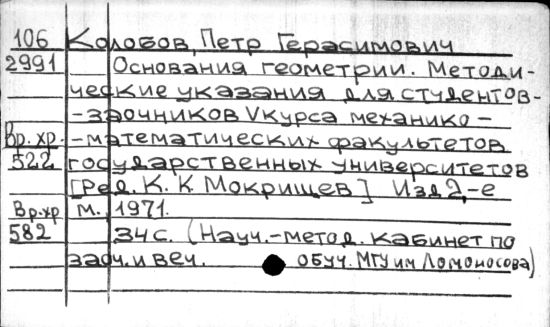 106 Колобов, Петр Герасимович
2991 Основания геометрии. Методи-
ческие указания для студентов-
-заочников V курса механико-
Вр.хр. -математических факультетов
522 государственных университетов
[Ред. К. К. Мокрищев] Изд. 2,-е
Вр.хр м., 1971.
582 34с. (Науч.-метод. кабинет по
заоч. и веч. обуч. МГУ им Ломоносова)